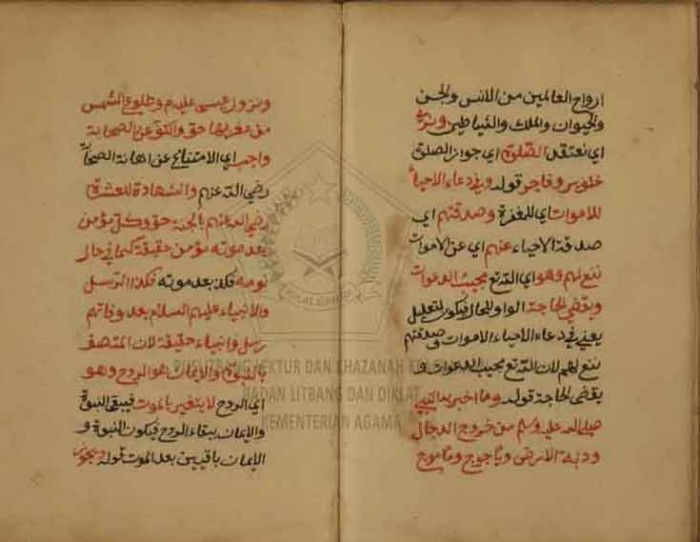 ارواح العالمين من الانس والجن
والحيوان والملك والشياطين ونرى
اي نعتقد الصلوة اي جواز الصلوة
خلف بر وفاجر قوله وفي دعاء الاحياء
للاموات اي للمغفرة وصدقتهم اي
صدقة الاحياء عنهم اي عن الاموات
نفع لهم وهو اي الله تع مجيب الدعوات
ويقضي الحاجة الواو للحال فيكون للتعليل
يعني في دعاء الاحياء الاموات وصدقتهم
نفع لهم لان الله تع مجيب الدعوات و
يقضي الحاجة قوله وما اخبر به النبي
صلى الله عليه وسلم من خروج الدجال
ودابة الارض وياجوج وماجوج
ونزول عيسى عليه م وطلوع الشمس
من مغربها حق والكف عن الصحابة
واجب اي الامتناع عن اهانة الصحابة
رضي الله عنهم والشهادة للعشرة
رضي الله عنهم بالجنة حق وكل مؤمن
بعد موته مؤمن حقيقة كما في حال
نومه فكذ بعد موته فكذا الرسل
والانبياء عليهم السلام بعد وفاتهم
رسل وانبياء حقيقة لان المتصف
بالنبوة والايمان هو الروح وهو
اي الروح لا يتغير بالموت فيبقى النبوة
والايمان ببقاء الروح فيكون النبوة و
الايمان باقيين بعد الموت قوله ويجوز
PUSLITBANG LEKTUR DAN KHAZANAH KEAGAMAAN
BADAN LITBANG DAN DIKLAT
KEMENTERIAN AGAMA